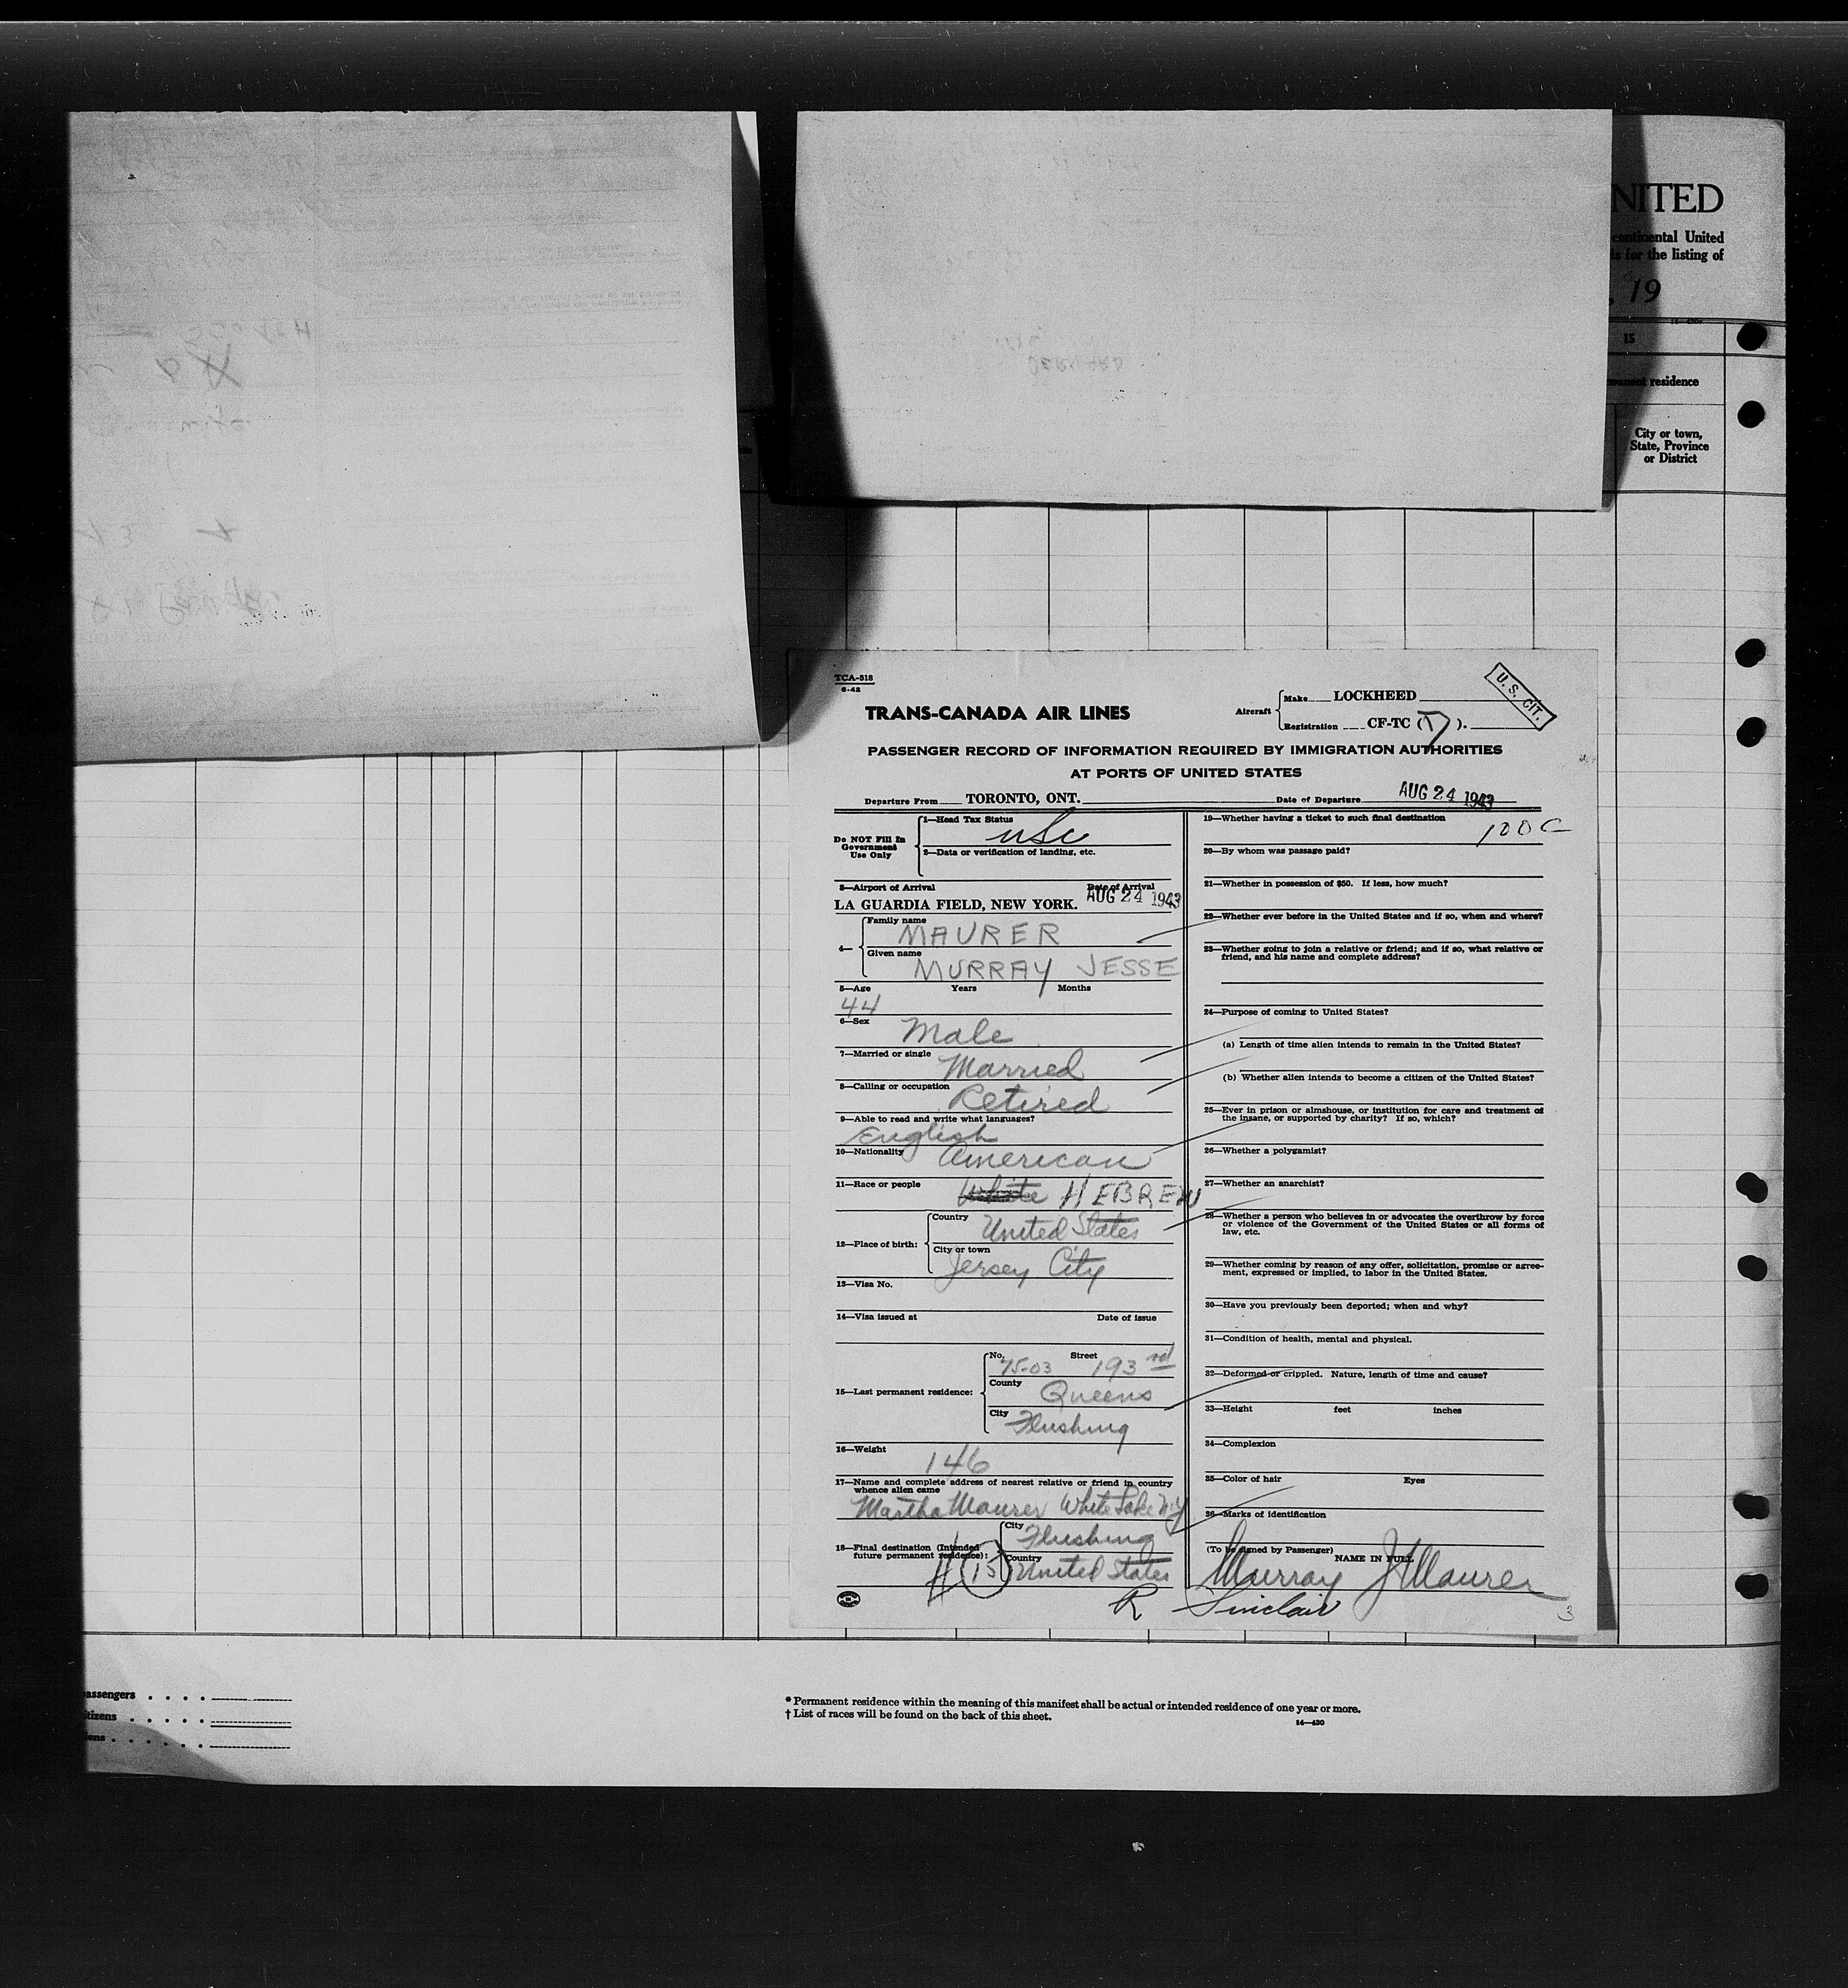 NITED
continental United
is for the listing of
, 19
15
residence
City or town,
State, Province
or District
TCA-518
6-42
TRANS-CANADA AIR LINES
Aircraft
Make LOCKHEED
Registration CF-TC ( ).
U. S. CIT.
PASSENGER RECORD OF INFORMATION REQUIRED BY IMMIGRATION AUTHORITIES
AT PORTS OF UNITED STATES
Departure From TORONTO, ONT. Date of Departure AUG 24 1943
Do NOT Fill In
Government
Use Only
1—Head Tax Status
usc
2—Data or verification of landing, etc.
3—Airport of Arrival Date of Arrival
LA GUARDIA FIELD, NEW YORK. AUG 24 1943
4— Family name
MAURER
Given name
MURRAY JESSE
5—Age Years Months
44
6—Sex
Male
7—Married or single
Married
8—Calling or occupation
Retired
9—Able to read and write what languages?
English
10—Nationality American
11—Race or people White HEBREW
12—Place of birth:
Country
United States
City or town
Jersey City
13—Visa No.
14—Visa issued at Date of issue
15—Last permanent residence:
No. Street
75-03 193rd
County
Queens
City
Flushing
16—Weight
146
17—Name and complete address of nearest relative or friend in country
whence alien came
Martha Maurer White Lake NY
18—Final destination (Intended
future permanent residence):
City
Flushing
Country
United States
15
19—Whether having a ticket to such final destination
100C
20—By whom was passage paid?
21—Whether in possession of $50. If less, how much?
22—Whether ever before in the United States and if so, when and where?
23—Whether going to join a relative or friend; and if so, what relative or
friend, and his name and complete address?
24—Purpose of coming to United States?
(a) Length of time alien intends to remain in the United States?
(b) Whether alien intends to become a citizen of the United States?
25—Ever in prison or almshouse, or institution for care and treatment of
the insane, or supported by charity? If so, which?
26—Whether a polygamist?
27—Whether an anarchist?
28—Whether a person who believes in or advocates the overthrow by force
or violence of the Government of the United States or all forms of
law, etc.
29—Whether coming by reason of any offer, solicitation, promise or agree-
ment, expressed or implied, to labor in the United States.
30—Have you previously been deported; when and why?
31—Condition of health, mental and physical.
32—Deformed or crippled. Nature, length of time and cause?
33—Height feet inches
34—Complexion
35—Color of hair Eyes
36—Marks of identification
(To be signed by Passenger) NAME IN FULL
Murray J Maurer
R Sinclair
3
* Permanent residence within the meaning of this manifest shall be actual or intended residence of one year or more.
† List of races will be found on the back of this sheet.
14—430